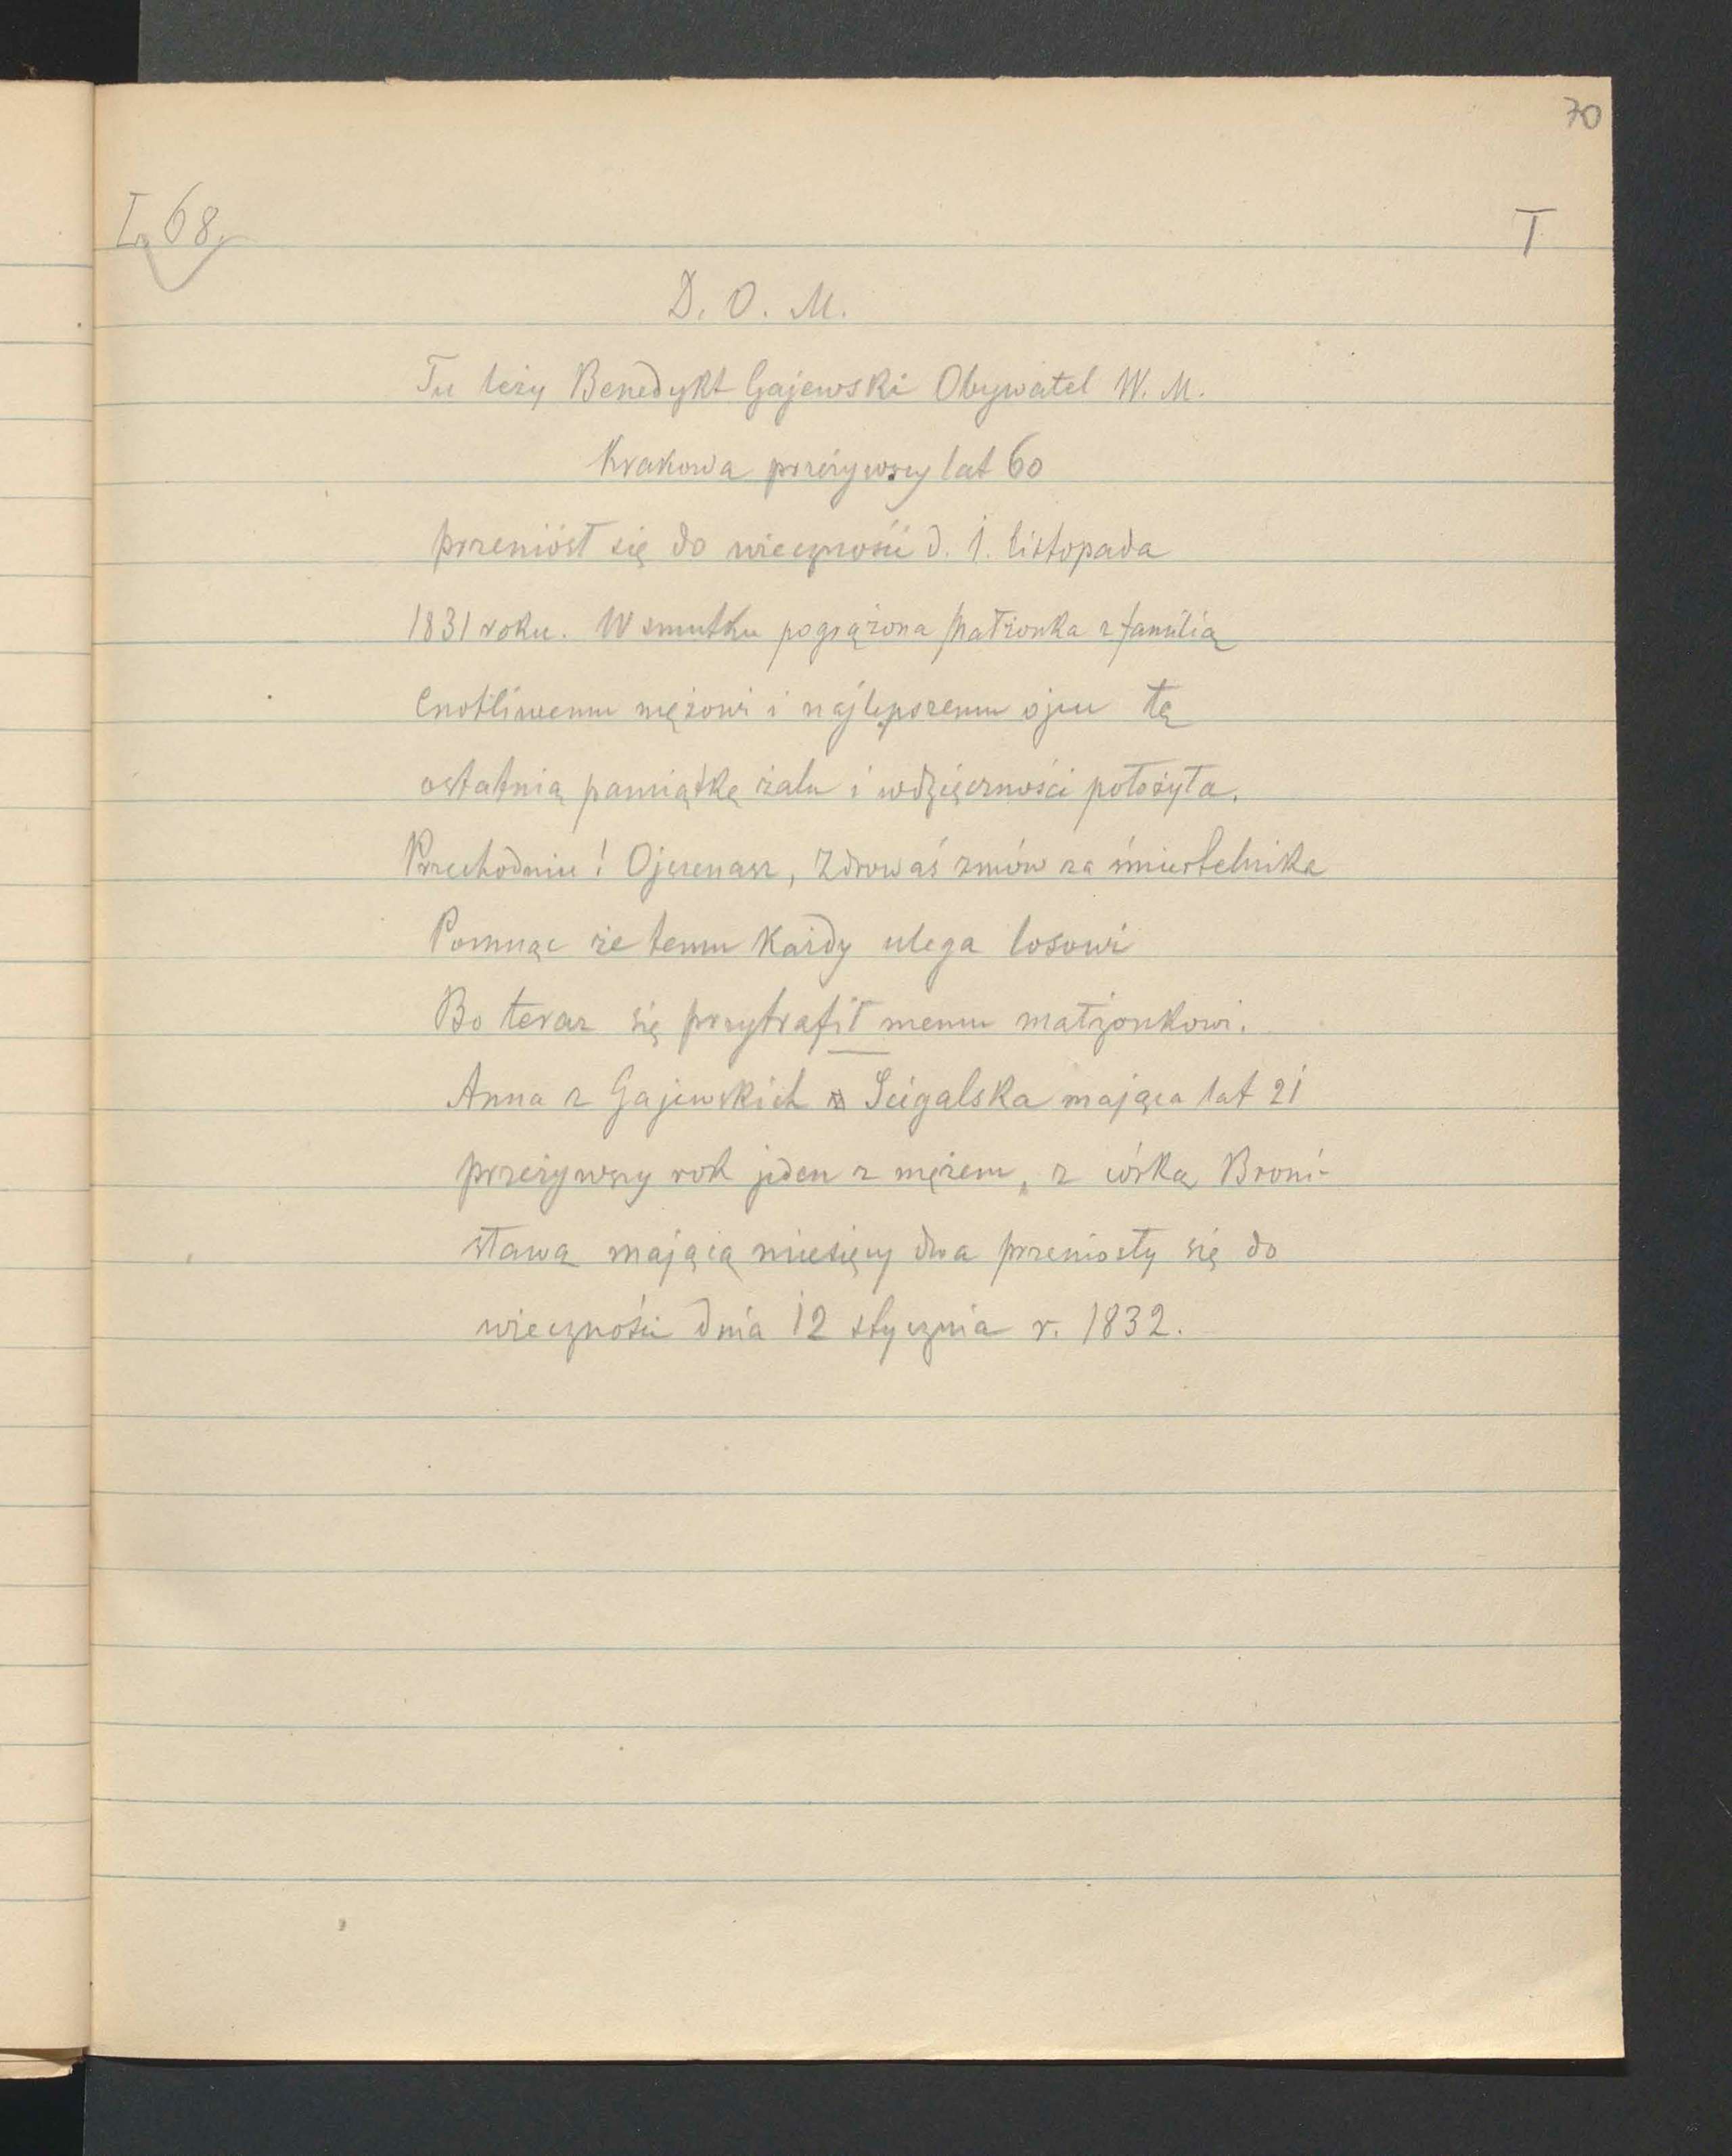 70
I, 68.
T
D. O. M.
Tu leży Benedykt Gajewski Obywatel W. M.
Krakowa przeżywszy lat 60
przeniósł się do wieczności d. 1. listopada
1831 roku. W smutku pogrążona małżonka z familią
Cnotliwemu mężowi i najlepszemu ojcu tę
ostatnią pamiątkę żalu i wdzięczności położyła.
Przechodniu! Ojczenasz, Zdrowaś zmów za śmiertelnika
Pomnąc że temu każdy ulega losowi
Bo teraz się przytrafił memu małżonkowi.
Anna z Gajewskich Ścigalska mająca lat 21
przeżywszy rok jeden z mężem, z córką Broni-
sławą mającą miesięcy dwa przeniosły się do
wieczności dnia 12 stycznia r. 1832.